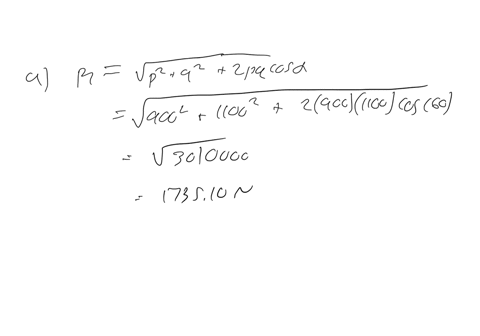 a) R = √p² + q² + 2pq cosα
= √900² + 1100² + 2(900)(1100) cos(60)
= √3010000
= 1735.10 N